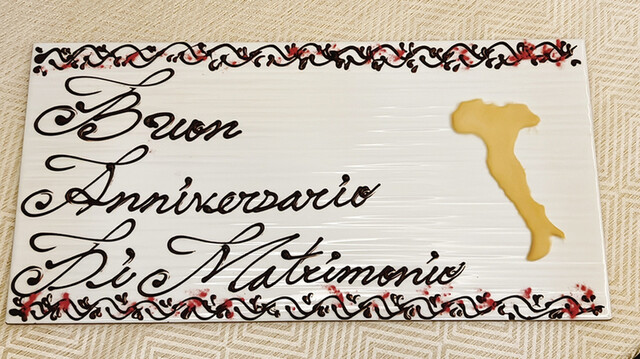 Buon
Anniversario
Di Matrimonio